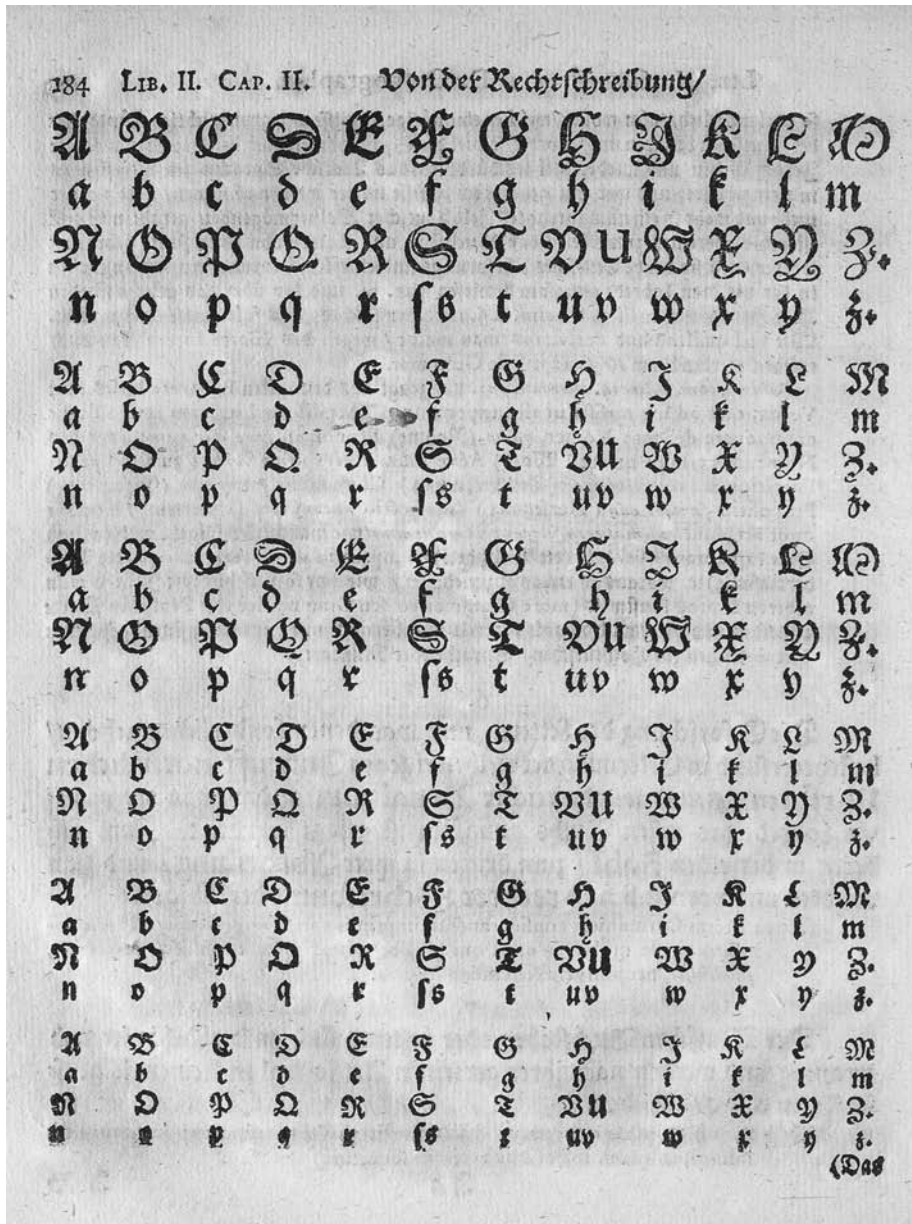 184 LIB. II. CAP. II. Von der Rechtschreibung/
A B C D E F G H J K L M
a b c d e f g h i k l m
N O P Q R S T V U W X Y Z.
n o p q r ſs t uv w x y z.
A B C D E F G H J K L M
a b c d e f g h i k l m
N O P Q R S T VU W X Y Z.
n o p q r ſs t uv w x y z.
A B C D E F G H J K L M
a b c d e f g h i k l m
N O P Q R S T VU W X Y Z.
n o p q r ſs t uv w x y z.
A B C D E F G H J K L M
a b c d e f g h i k l m
N O P Q R S T VU W X Y Z.
n o p q r ſs t uv w x y z.
A B C D E F G H J K L M
a b c d e f g h i k l m
N O P Q R S T VU W X Y Z.
n o p q r ſs t uv w x y z.
A B C D E F G H J K L M
a b c d e f g h i k l m
N O P Q R S T VU W X Y Z.
n o p q r ſs t uv w x y z.
(Das